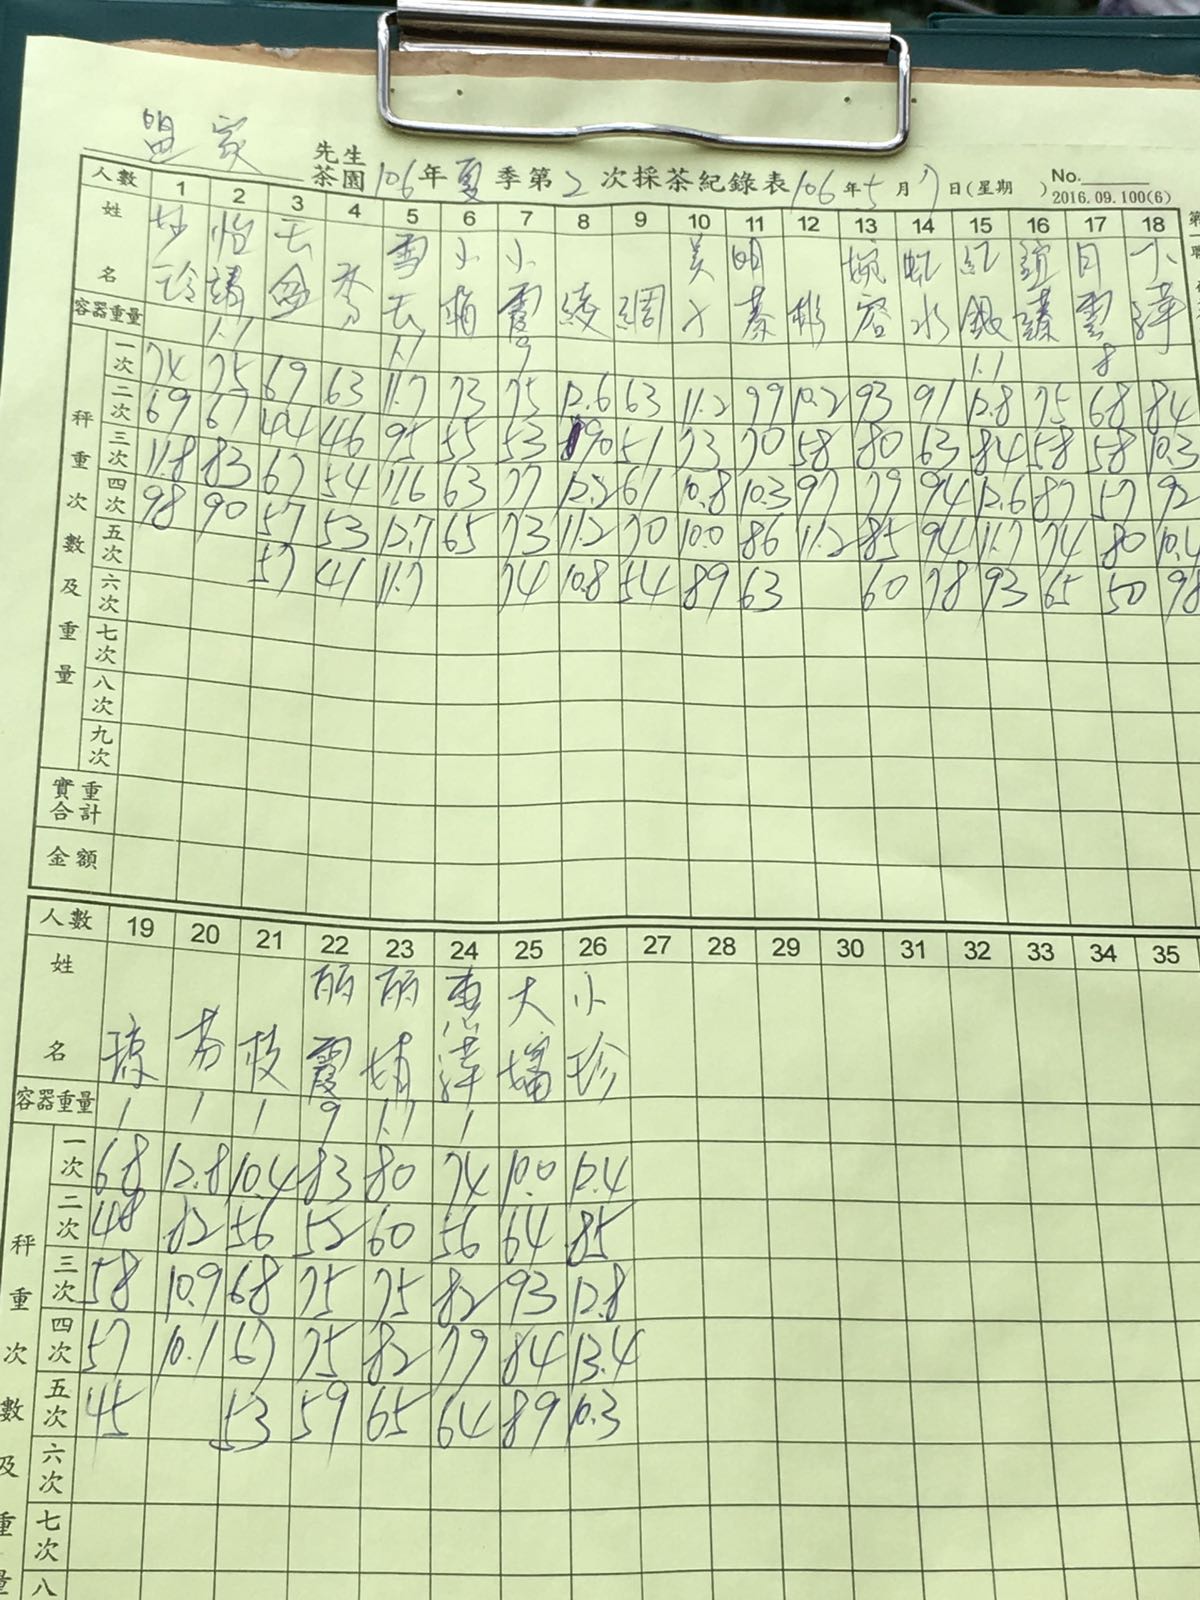 盟家
先生
茶園 106年夏季第2次採茶紀錄表 106年5月17日(星期 ) No.
2016.09.100(6)
人數 1 2 3 4 5 6 7 8 9 10 11 12 13 14 15 16 17 18
姓 妙 怡 云 雪 小 小 美 明 婉 虹 紅 誼 月 小
名 玲 靖 金 秀 云 霞 綾 綢 彬 容 水 銀 臻 雲 萍
容器重量 1.7 1.7 9 1.1 8
秤重次數及重量
一次 74 75 69 63 11.7 73 75 12.6 63 11.2 99 10.2 93 91 12.8 75 68 84
二次 69 67 44 46 95 55 53 90 51 73 70 58 80 63 84 58 58 10.3
三次 11.8 83 67 54 11.6 63 77 12.2 61 10.8 10.3 97 79 94 12.6 87 57 92
四次 98 90 57 53 12.7 65 73 11.2 70 10.0 86 11.2 85 94 11.7 74 80 10.4
五次 57 41 11.7 74 10.8 54 89 63 60 78 93 65 50 98
六次
七次
八次
九次
實重合計
金額
人數 19 20 21 22 23 24 25 26 27 28 29 30 31 32 33 34 35
姓 丽 丽 惠 大 小
名 琼 芬 枝 霞 萍 珍
容器重量 1 1 1 9 1.7 1
秤重次數及重量
一次 68 12.8 10.4 83 80 74 10.0 12.4
二次 48 82 56 52 60 56 64 85
三次 58 10.9 68 75 75 82 93 12.8
四次 57 10.1 67 75 82 79 84 13.4
五次 45 53 59 65 64 89 10.3
六次
七次
八